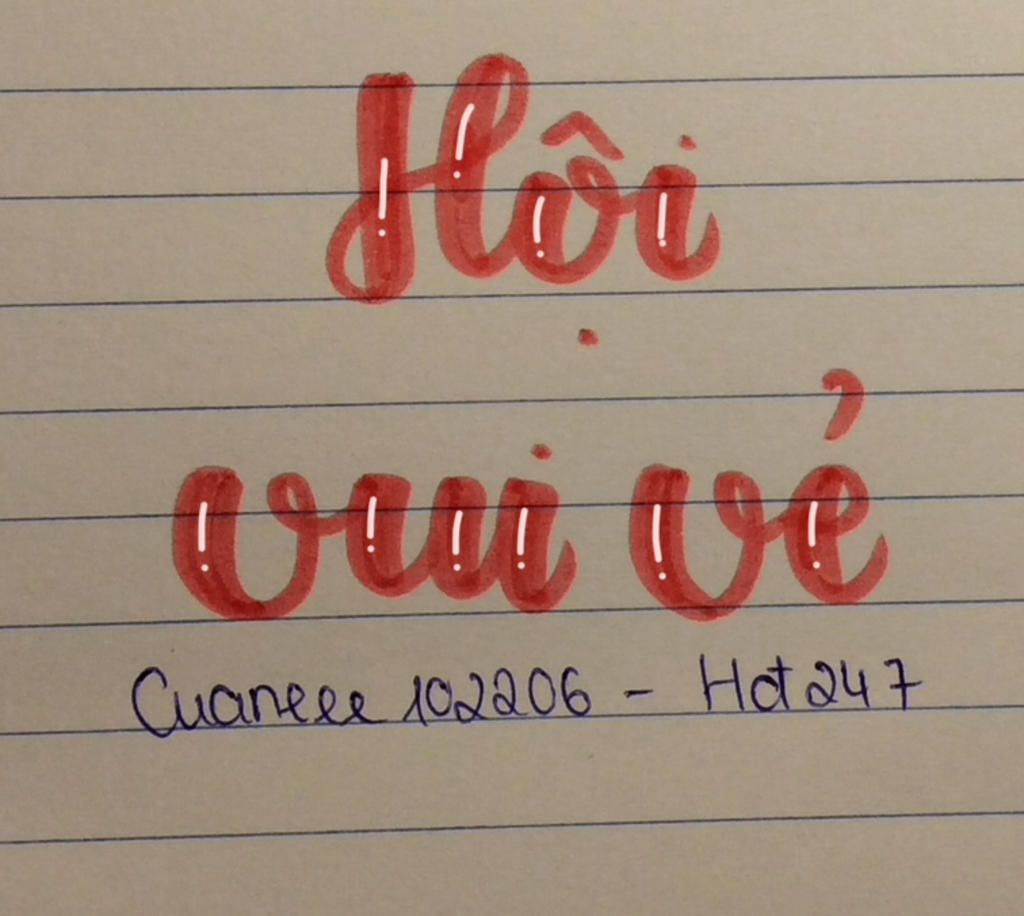 Hội
vui vẻ
Cuaneee 102206 - Hot247